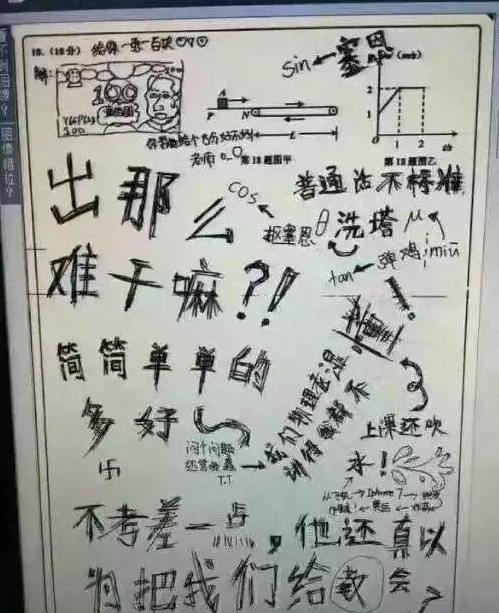 18.(10分) 给你一张一百块
解:
100
YGGPGG
100
sin ← 塞恩
(m/s)
A
P
N
L
1 2
你答应给个8分好不好
老师 o_O 第18题图甲
第18题图乙
出那么
cos
普通话不标准
抠塞恩
θ 洗塔
μ
难干嘛?!
tan ← 弹鸡
miū
简简单单的
多好
我们物理老湿
讲得都不
重!
上课还吹
水!
问个问题
还管我
T.T
从飞机 → Iphone 7 →
不考差一点,他还真以
为把我们给教会